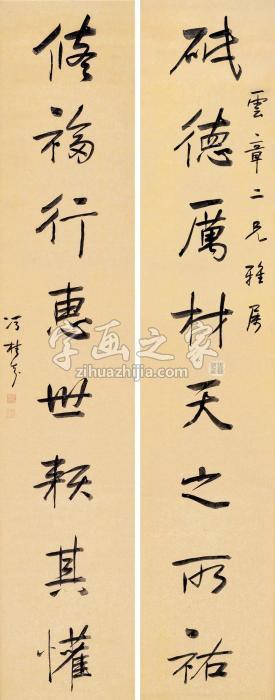 雲章二兄雅屬
砥德厲材天之所祐
脩福行惠世賴其懽
馮桂芬
字画之家
zihuazhijia.com